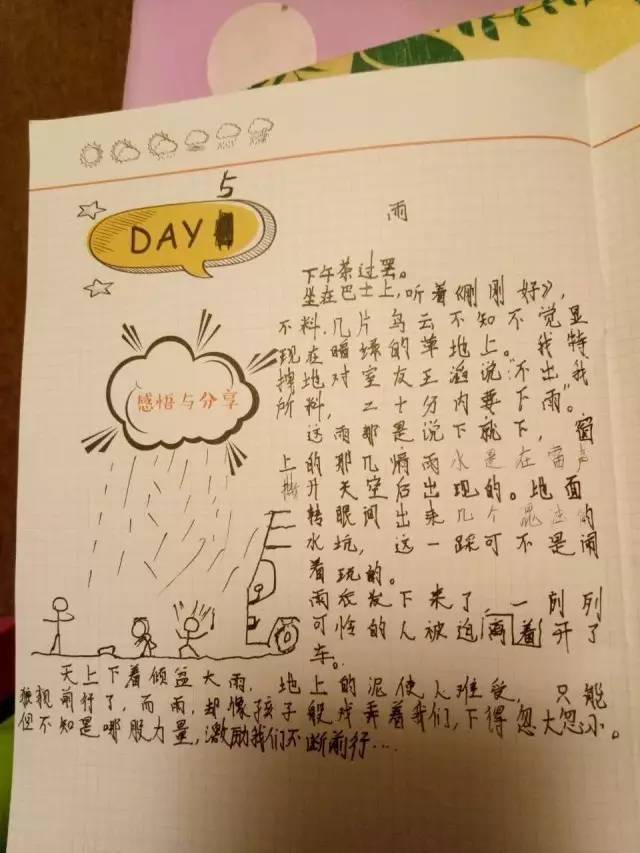 5
DAY
雨
感悟与分享
下午茶过罢。
坐在巴士上,听着《刚刚好》,
不料,几片乌云不知不觉显
现在暗绿的草地上。"我特
地对室友王涵说"不出我
所料,二十分内要下雨"。
这雨那是说下就下,窗
上的那几滴雨水是在雷声
撕开天空后出现的。地面
转眼间出来几个混浊的
水坑,这一踩可不是闹
着玩的。
雨衣发下来了,一列列
可怜的人被迫离着开了
车。
天上下着倾盆大雨,地上的泥使人难受,只能
狼狈前行了,而雨,却像孩子般戏弄着我们,下得忽大忽小。
但不知是哪股力量,激励我们不断前行...